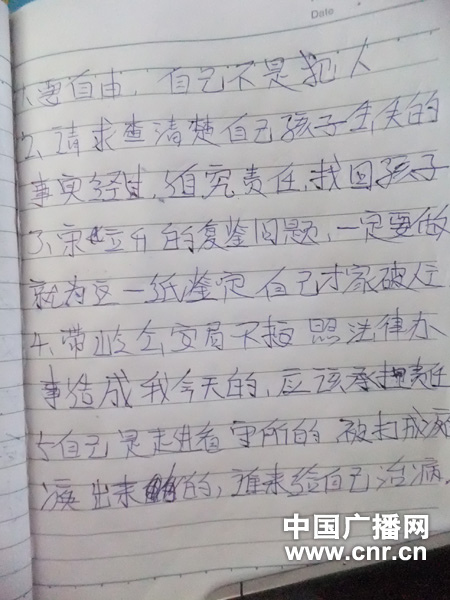 Date
1、要自由，自己不是犯人
2、请求查清楚自己孩子丢失的
事实经过，追究责任，找回孩子
3、的复鉴问题，一定要做
就为这一纸鉴定自己才家破人亡
4、带岭公安局不按照法律办
事造成我今天的，应该承担责任
5自己是走进看守所的 被打成瘫
痪出来的，谁来给自己治病.
中国广播网
www.cnr.cn